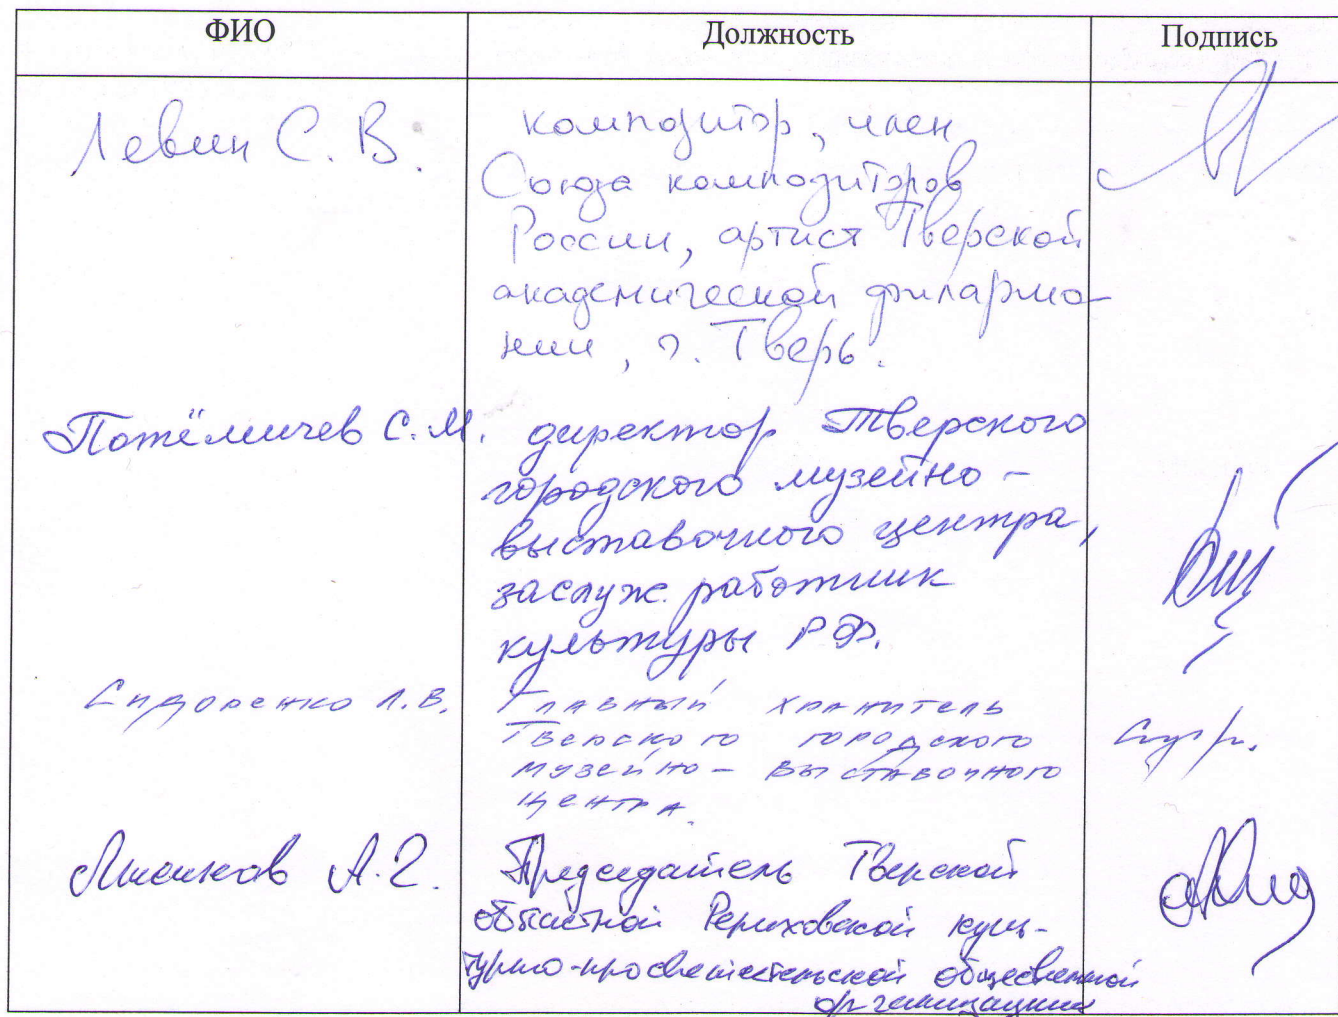 ФИО Должность Подпись
Левин С. В. композитор, член
Союза композиторов
России, артист Тверской
академической филармо-
нии, г. Тверь.
Потёмичев С. М. директор Тверского
городского музейно-
выставочного центра,
заслуж. работник
культуры РФ.
Сидоренко Л.В. Главный хранитель
Тверского городского
музейно-выставочного
центра.
А.Г. Председатель Тверской
областной Рериховской куль-
турно-просветительской общественной
организации